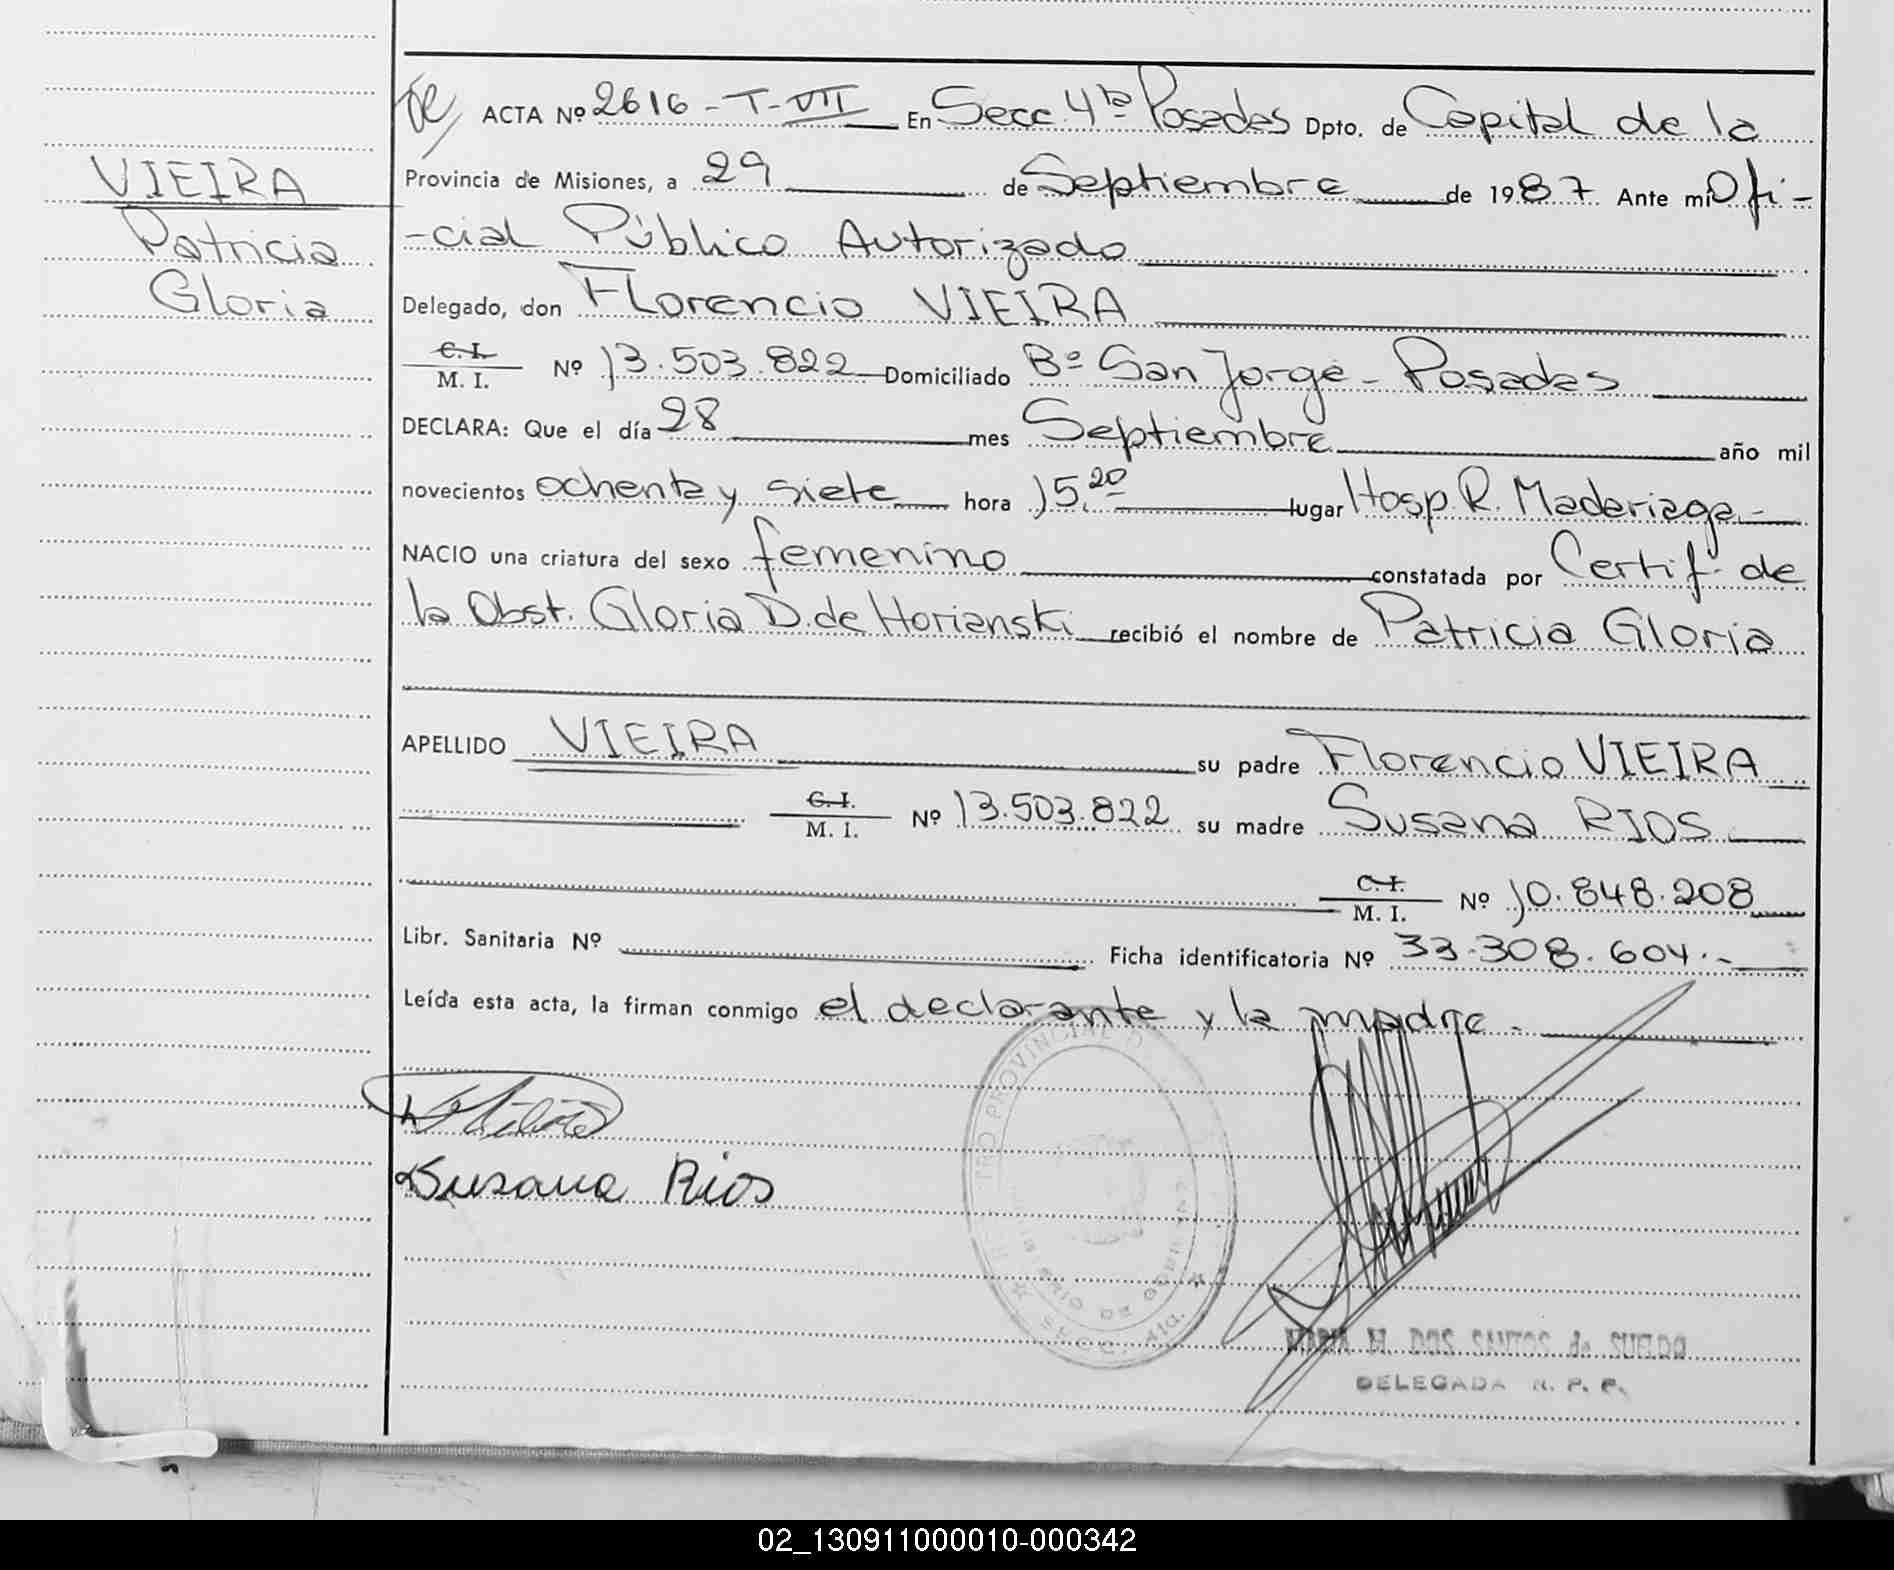 VIEIRA
Patricia
Gloria
ACTA Nº 2616 - T - VII En Secc. 4ta Posadas Dpto. de Capital de la
Provincia de Misiones, a 29 de Septiembre de 1987. Ante mi Ofi-
-cial Público Autorizado
Delegado, don Florencio VIEIRA
C. I.
M. I. Nº 13.503.822 Domiciliado Bº San Jorge - Posadas
DECLARA: Que el día 28 mes Septiembre año mil
novecientos ochenta y siete hora 15.20 lugar Hosp. R. Madariaga -
NACIO una criatura del sexo femenino constatada por Certif. de
la Obst. Gloria D. de Horianski recibió el nombre de Patricia Gloria
APELLIDO VIEIRA su padre Florencio VIEIRA
C. I.
M. I. Nº 13.503.822 su madre Susana RIOS
C. I.
M. I. Nº 10.848.208
Libr. Sanitaria Nº Ficha identificatoria Nº 33.308.604.-
Leída esta acta, la firman conmigo el declarante y la madre.
Susana Rios
SECC. 4ta.
MARIA M. DOS SANTOS de SUELDO
DELEGADA R. P. P.
02_130911000010-000342